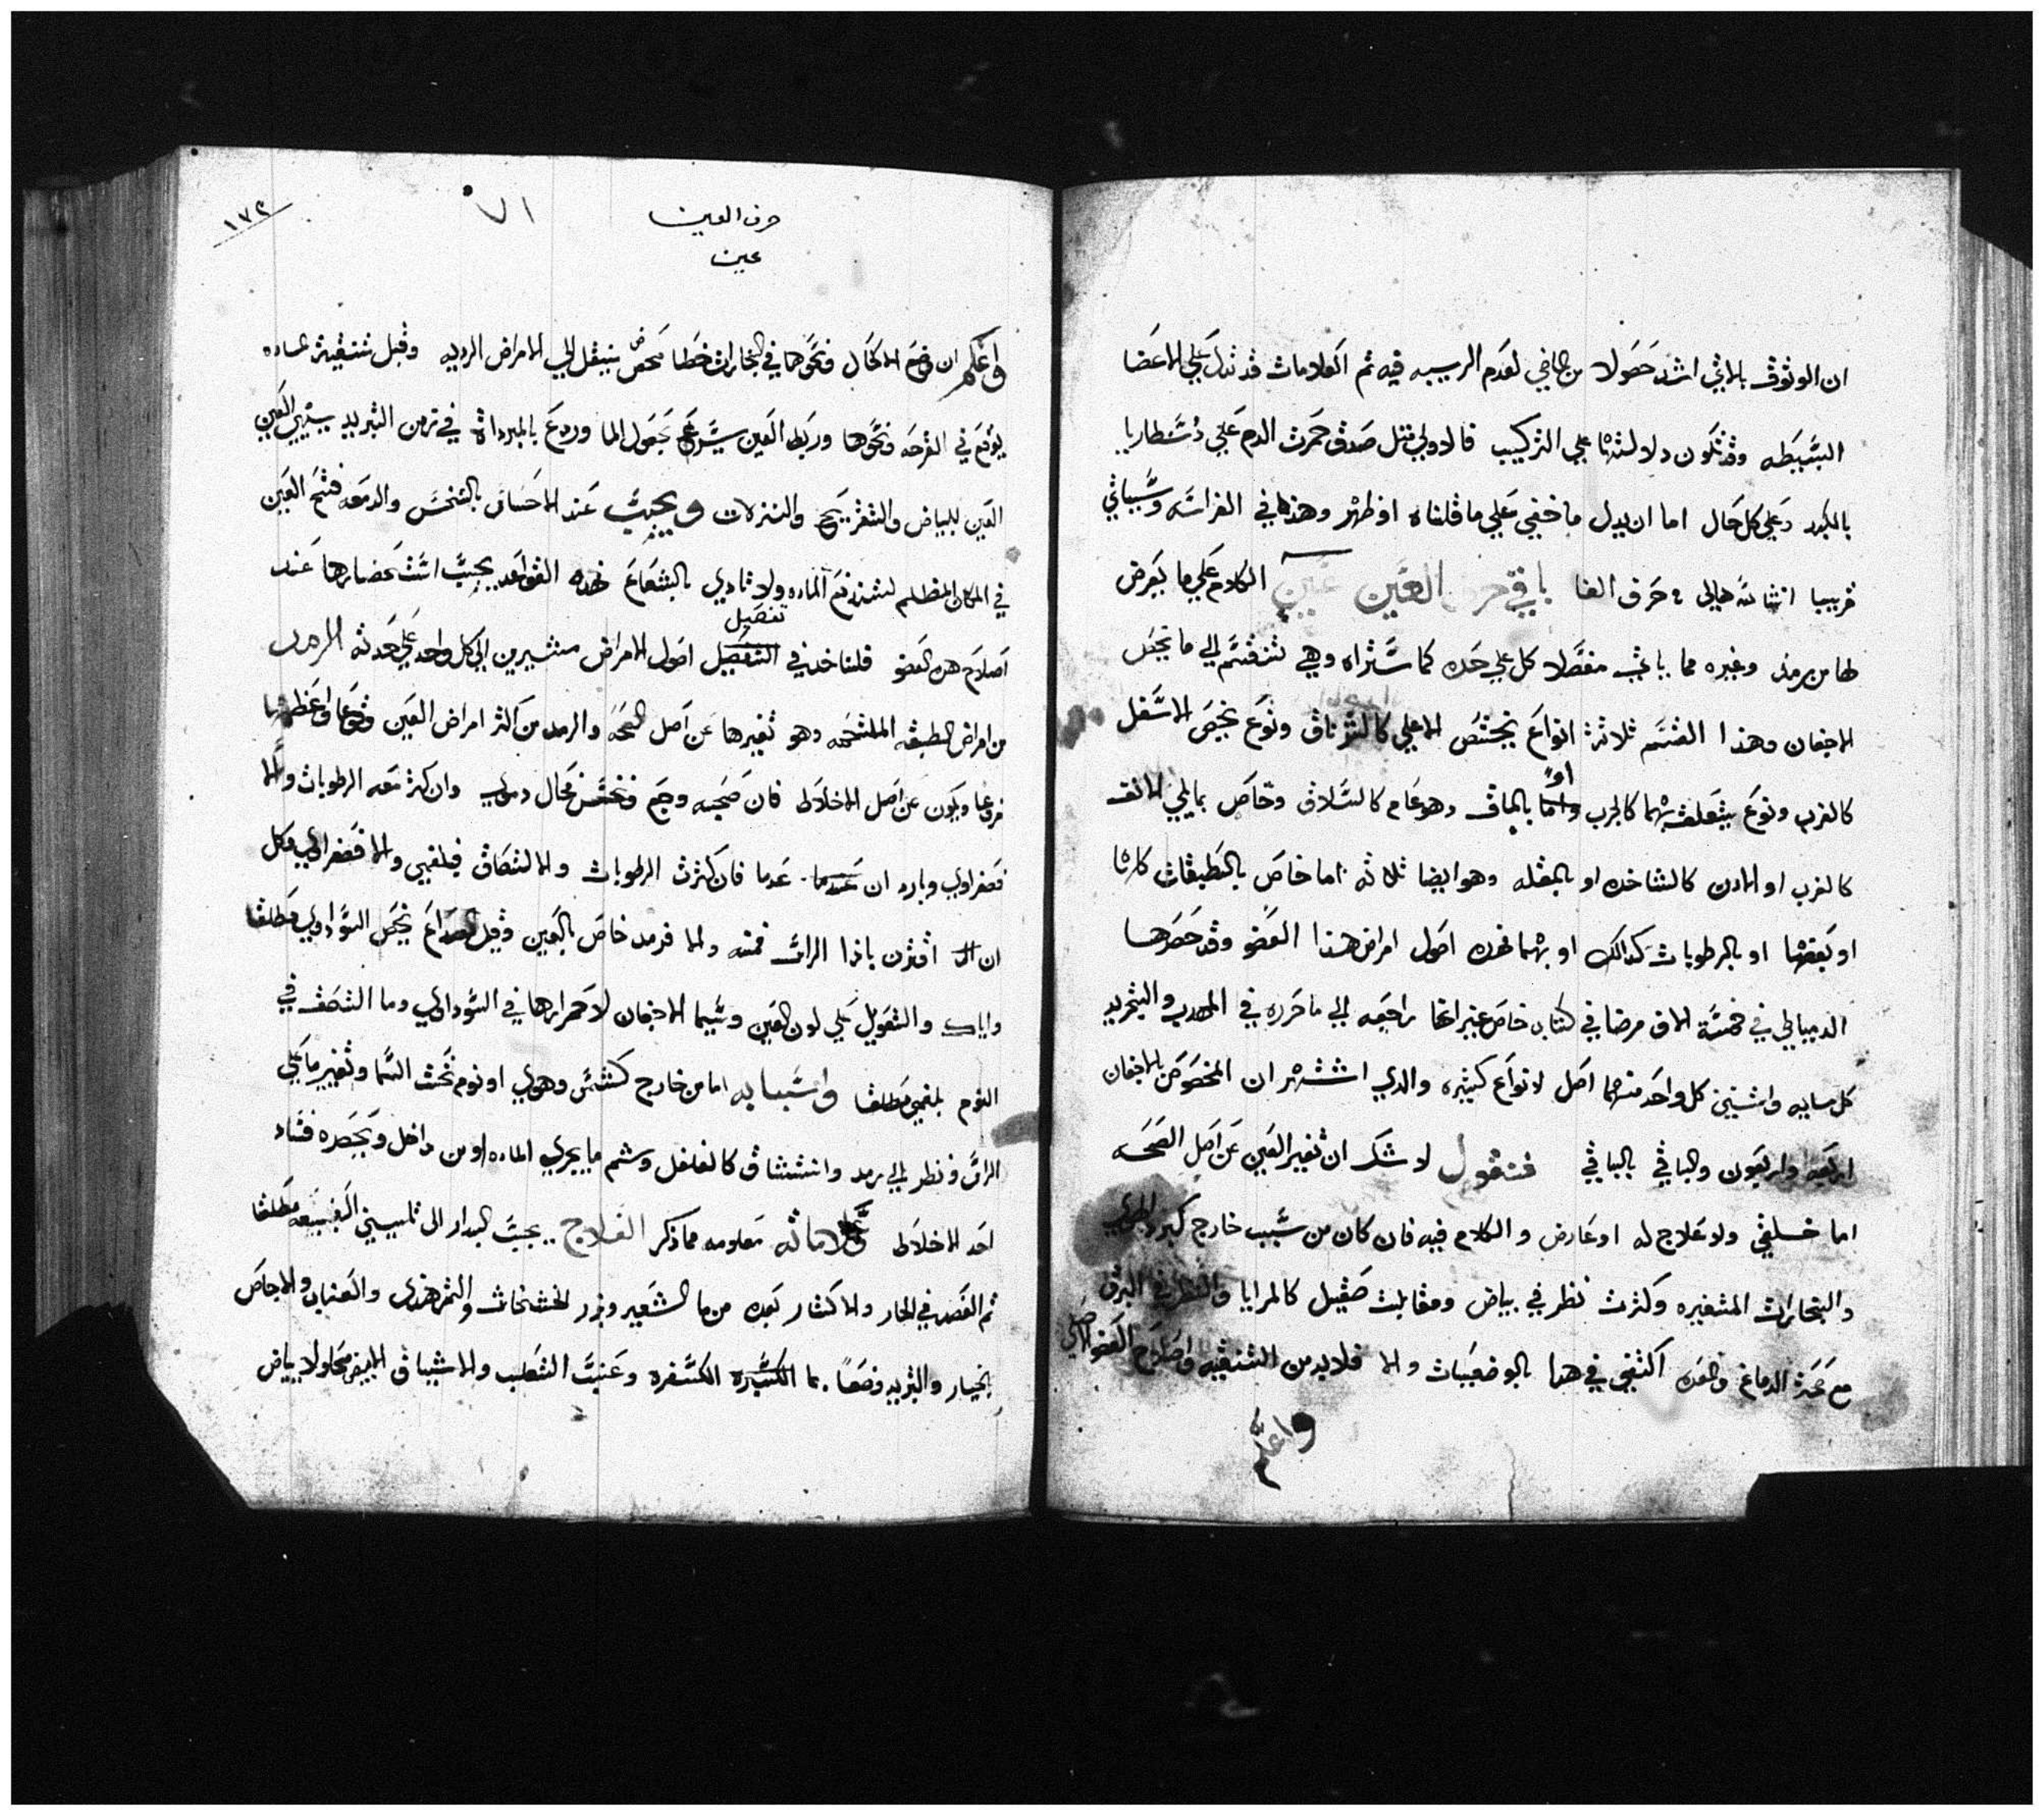 ان الوثوق بالاتي اشد حصولا من الماضي لعدم الريبه فيه ثم العلامات قد تدل علي الاعضا
البسيطه وقد تكون دلالتها علي التركيب فالاولي مثل صدق حمرت الدم علي
بالكبد وعلي كل حال اما ان يدل ما خفي علي ما قلناه او ظهر وهذه في الفراسه وسياتي
قريبا انشا الله تعالي في حرف الفا باقي حرف العين عين الكلام علي ما يعرض
لها من رمد وغيره مما ياتي مفصلا كل علي حده كما ستراه وهي تنقسم الي ما يخص
الاجفان وهذا القسم ثلاثة انواع يختص الاعلي كالشرناق ونوع يخص الاسفل
كالغرب ونوع يتعلق بهما كالجرب او بالماق وهو عام كالسلاق وخاص بما يلي الانف
كالغرب او الاذن كالشاخده او بالمقله وهو ايضا ثلاثه اما خاص بالطبقات كلها
او بعضها او بالرطوبات كذالك او بهما فهذه اصول امراض هذا العضو وقد حصرها
في خمسة الاف مرضا في كتاب خاص غير انها راجعه الي ما حرره في المهدب والتجريد
كل مايه واثنين كل واحد منهما اصل لانواع كثيره والذي اشتهر ان المخصوص بالاجفان
اربعه واربعون والباقي بالباقي فنقول لا شك ان تغير العين عن اصل الصحه
اما خلقي ولا علاج له او عارض والكلام فيه فان كان من سبب خارج كبرد الهوي
والبخارات المتغيره وكثرت نظر في بياض ومقابلت صقيل كالمرايا والنظر في البرق
مع صحة الدماغ والمعده اكتفي في هذا بالوضعيات والا فلابد من التنقيه واصلاح العضو الاصلي
واعلم
١٧٢
٧١
حرف العين
عين
واعلم ان وضع الاكحال ونحوهما في البخارات خطا محض ينتقل الي الامراض الرديه وقبل تنقية الماده
يوقع في القرحه ونحوها وربط العين يسرع بنزول الما وردع بالمبردات في زمن التزيد يهيي العين
العين للبياض والتقريح والنزلات ويجب عند الاحساس بالنخس والدمعه فتح العين
في المكان المظلم لتندفع الماده ولا تاذي بالشعاع فهذه القواعد يجب استحضارها عند
اصلاح هذا العضو قلناخذ في تفصيل اصول الامراض مشيرين الي كل واحد علي حدته الرمد
من امراض الطبقه الملتحمه وهو تغيرها عن اصل الصحه والرمد من اكثر امراض العين وقوعا واعظمها
فروعا ويكون عن اصل الاخلاط فان صحبه وجع ونخس فحار دموي وان كثرت معه الرطوبات والا
فصفراوي وبارد ان عدما فان كثرت الرطوبات والالتصاق فبلغمي والا فصفراوي وكل
ان اقترن باذا الراس فمنه والا فرمد خاص بالعين وقيل الصداع يخص السوداوي مطلقا
واياك والتعويل علي لون العين وسيما الاجفان لاحمرارها في السوداوي وما التصق في
النوم بلغمي مطلقا واسبابه اما من خارج كشمس وهوي او نوم تحت السما وتغيير ما علي
الراس ونظر الي رمد وانتشاق كالفلفل وشم ما يحرك الماده او من داخل ويحصره فساد
احد الاخلاط وعلاماته معلومه مما ذكر العلاج يجب البدار الي تليين الطبيعه مطلقا
ثم الفصد في الحار والاكثار بعده من ما الشعير وبزر الخشخاش والتمرهندي والعناب والاجاص
بالخيار والتبريد وضعا بما الكسفره وعنب الثعلب والاشياف الابيض محلولا ببياض